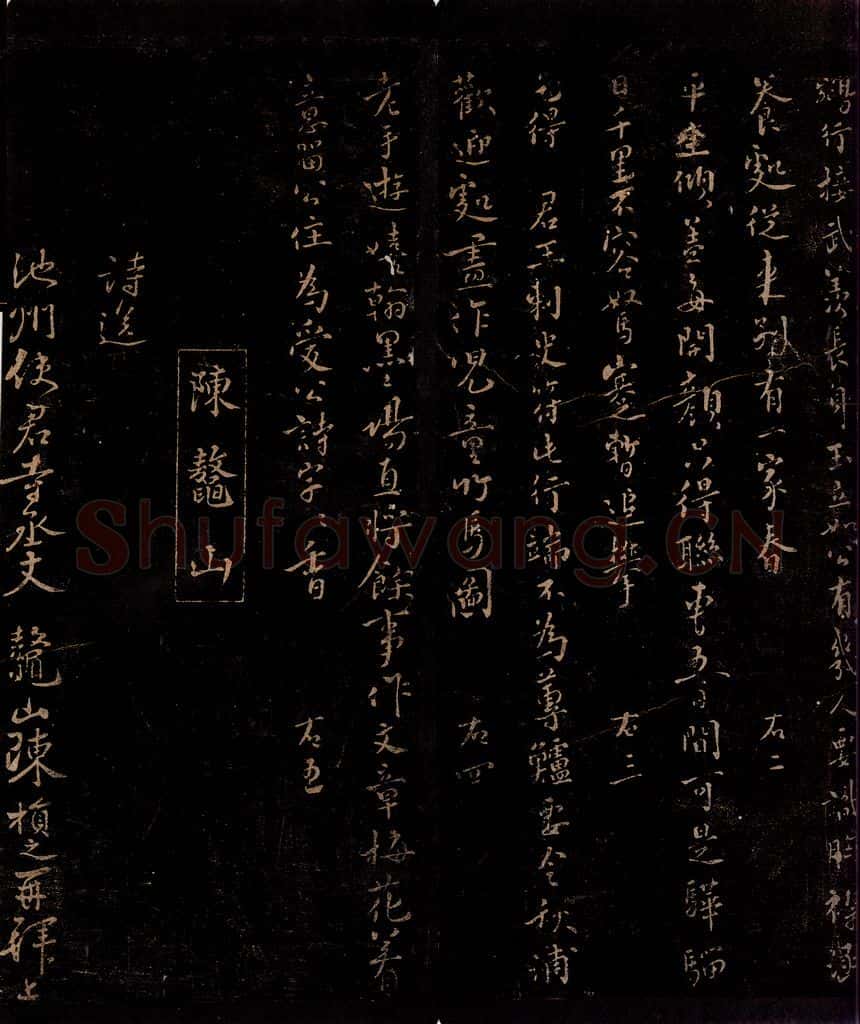 鵷行接武羨長身玉立如公有幾人要識胸襟涵
養處從来別有一家春
右二
平生傾蓋每開顏只得聯車五日間可是驊騮
日千里不容駑蹇暫追攀
右三
乞得君王刺史符此行端不為蓴鱸要令秋浦
歡迎處盡作児童竹馬圖
右四
老手遊嬉翰墨場直將餘事作文章梅花着
意留公住為愛公詩字〻香
右五
陳鼇山
詩送
池州使君寺丞丈 鼇山陳楨之再拜上
Shufawang.CN